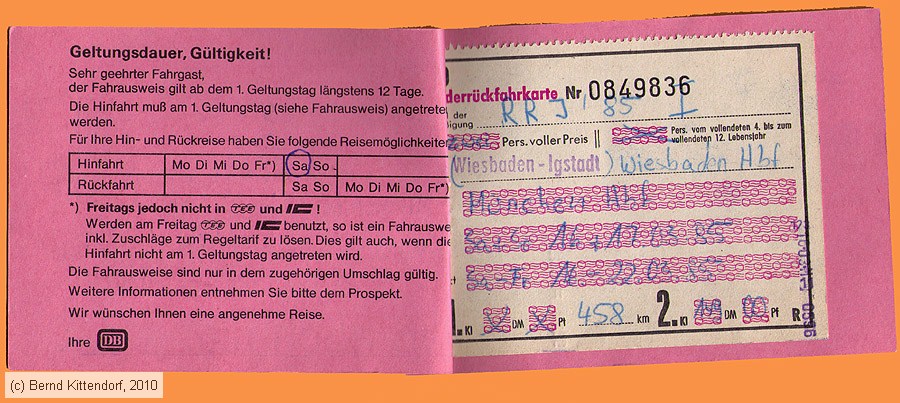 Geltungsdauer, Gültigkeit!
Sehr geehrter Fahrgast,
der Fahrausweis gilt ab dem 1. Geltungstag längstens 12 Tage.
Die Hinfahrt muß am 1. Geltungstag (siehe Fahrausweis) angetreten
werden.
Für Ihre Hin- und Rückreise haben Sie folgende Reisemöglichkeiten
Hinfahrt Mo Di Mi Do Fr*) Sa So
Rückfahrt Sa So Mo Di Mi Do Fr*)
*) Freitags jedoch nicht in TEE und IC !
Werden am Freitag TEE und IC benutzt, so ist ein Fahrauswe
inkl. Zuschläge zum Regeltarif zu lösen. Dies gilt auch, wenn die
Hinfahrt nicht am 1. Geltungstag angetreten wird.
Die Fahrausweise sind nur in dem zugehörigen Umschlag gültig.
Weitere Informationen entnehmen Sie bitte dem Prospekt.
Wir wünschen Ihnen eine angenehme Reise.
Ihre DB
derrückfahrkarte Nr 0849836
der
igung RRJ '85 I
Pers. voller Preis
Pers. vom vollendeten 4. bis zum
vollendeten 12. Lebensjahr
(Wiesbaden-Igstadt) Wiesbaden Hbf
München Hbf
1. Kl DM Pf 458 km 2. Kl DM Pf R
(c) Bernd Kittendorf, 2010